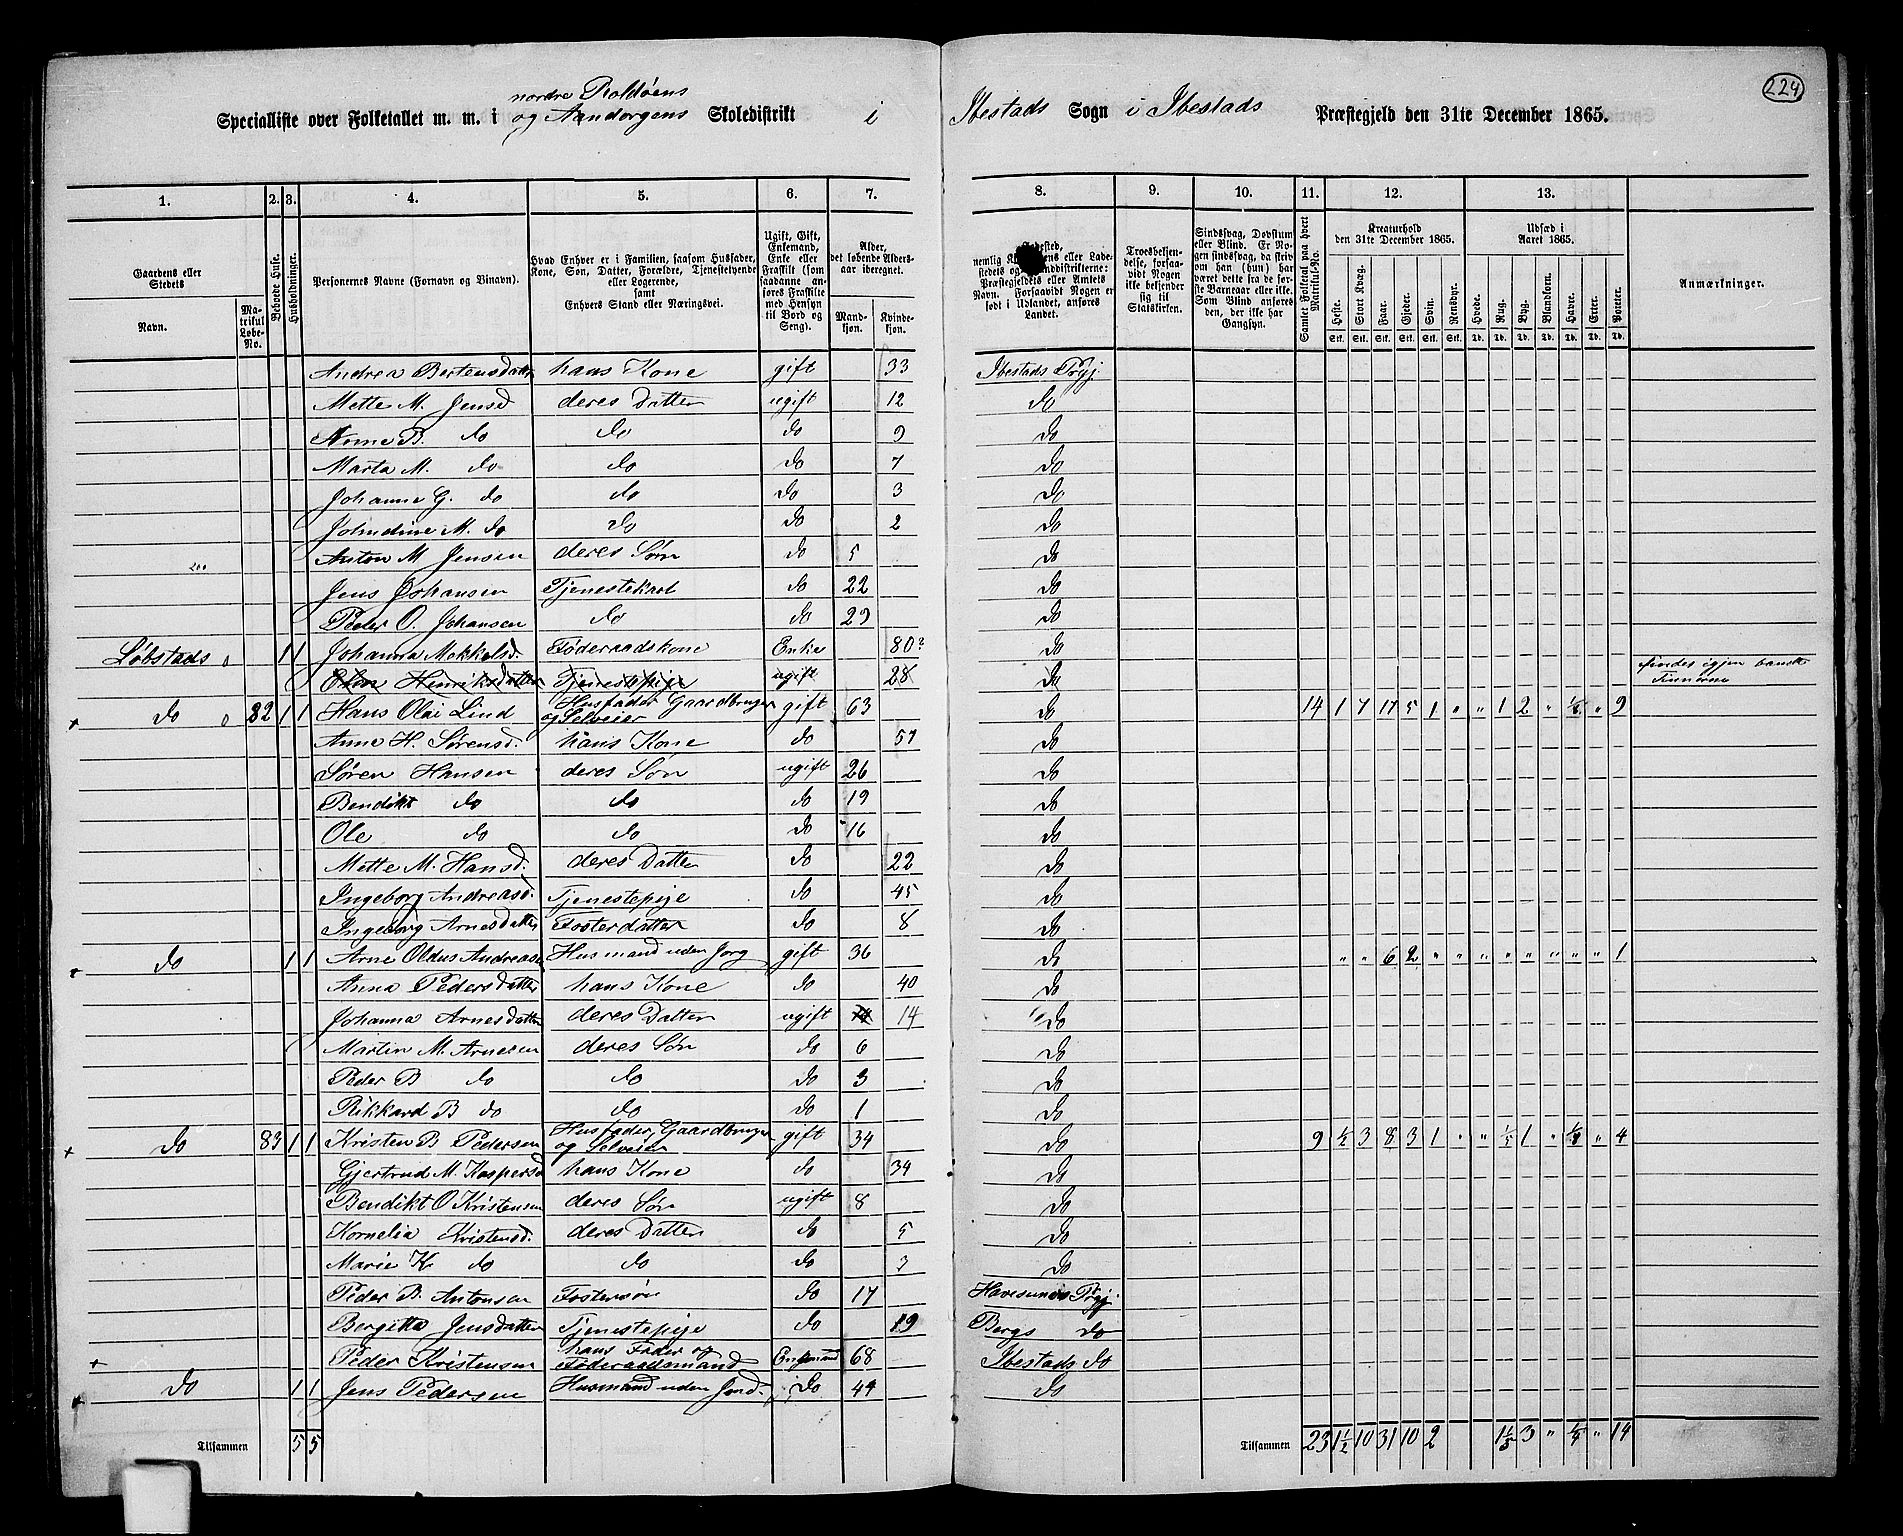 224
nordre Roldøens
Specialliste over Folketallet m. m. i og Aandorgens Skoledistrikt i Ibestads Sogn i Ibestads Præstegjeld den 31te December 1865.
1. 2. 3. 4. 5. 6. 7. 8. 9. 10. 11. 12. 13.
Gaardens eller Stedets
Navn.
Matrikul Løbe-No.
Beboede Huse.
Husholdninger.
Personernes Navne (Fornavn og Binavn).
Hvad Enhver er i Familien, saasom Husfader, Kone, Søn, Datter, Forældre, Tjenestetyende eller Logerende, samt Enhvers Stand eller Næringsvei.
Ugift, Gift, Enkemand, Enke eller Fraskilt (som saadanne anføres Fraskilte med Hensyn til Bord og Seng).
Alder, det løbende Alders-aar iberegnet.
Mandkjøn. Kvindekjøn.
Troesbekjendelse, forsaavidt Nogen ikke bekjender sig til Statskirken.
Sindssvag, Døvstum eller Blind.
Samlet Folketal paa hvert Matrikul-No.
Kreaturhold den 31te December 1865.
Heste. Stort Kvæg. Faar. Gjeder. Svin. Rensdyr.
Udsæd i Aaret 1865.
Hvede. Rug. Byg. Blandkorn. Havre. Erter. Poteter.
Anmærkninger.
Andrea Bertensdatter hans Kone gift 33 Ibestads Prgj.
Mette M. Jensd deres Datter ugift 12 do
Anne B. do do do 9 do
Marta M. do do do 7 do
Johanne G. do do do 3 do
do do do 2 do
Anton M Jensen deres Søn do 5 do
Jens Johansen Tjenestekarl do 22 do
Peder O. Johansen do do 29 do
Løbstads 1 1 Johanna Mekkelsd. Føderaadskone Enke 80? do
Elen Henriksdatter Tjenestepige ugift 28 do findes igjen
do 82 1 1 Hans Olai Lind Husfader Gaardbruger og Selveier gift 63 do 14 1 7 17 5 1 " " 1 2 " " 9
Anne H. Sørensd. hans Kone do 57 do
Søren Hansen deres Søn ugift 26 do
Bendikt do do do 19 do
Ole do do do 16 do
Mette M. Hansd. deres Datter do 22 do
Ingeborg Andreasd. Tjenestepige do 45 do
Ingeborg Arnesdatter Fosterdatter do 8 do
do 1 1 Arne Oldus Andreasen Husmand uden Jorg gift 36 do " " 6 2 " " " " " " " " 1
Anna Pedersdatter hans Kone do 40 do
Johanna Arnesdatter deres Datter ugift 14 do
Martin M. Arnesen deres Søn do 6 do
Peder B do do do 3 do
Rikkard B do do do 1 do
do 83 1 1 Kristen B Pedersen Husfader, Gaardbruger og Selveier gift 34 do 9 ½ 3 8 3 1 " " 1 " " 4
Gjertrud M. Kaspersd hans Kone do 34 do
Bendikt O Kristensen deres Søn ugift 8 do
Kornelia Kristensd. deres Datter do 5 do
Marie K do do do 3 do
Peder B. Antonsen Fostersøn do 17 Havesunds Prgj.
Bergitta Jensdatter Tjenestepige do 19 Bergs do
Peder Kristensen hans Fader og Føderaadsmand Enkemand 68 Ibestads do
do 1 1 Jens Pedersen Husmand uden Jord. do 49 do
Tilsammen 5 5
Tilsammen 23 1½ 10 31 10 2 3 " " 14